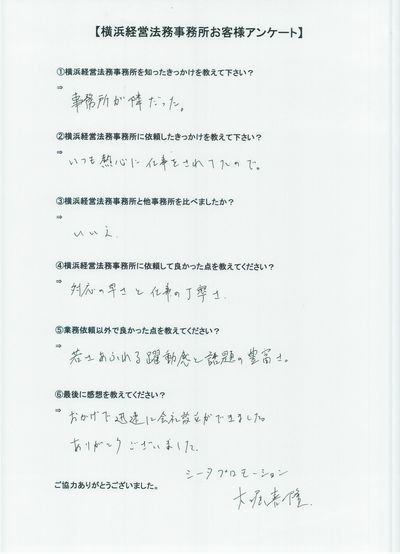 【横浜経営法務事務所お客様アンケート】
①横浜経営法務事務所を知ったきっかけを教えて下さい？
⇒
事務所が隣だった。
②横浜経営法務事務所に依頼したきっかけを教えて下さい？
⇒
いつも熱心に仕事をされてたので。
③横浜経営法務事務所と他事務所を比べましたか？
⇒
いいえ.
④横浜経営法務事務所に依頼して良かった点を教えてください？
⇒
対応の早さと仕事の丁寧さ.
⑤業務依頼以外で良かった点を教えてください？
⇒
若さあふれる躍動感と話題の豊富さ。
⑥最後に感想を教えてください？
⇒
おかげで迅速に会社設立ができました。
ありがとうございました.
シータプロモーション
ご協力ありがとうございました。